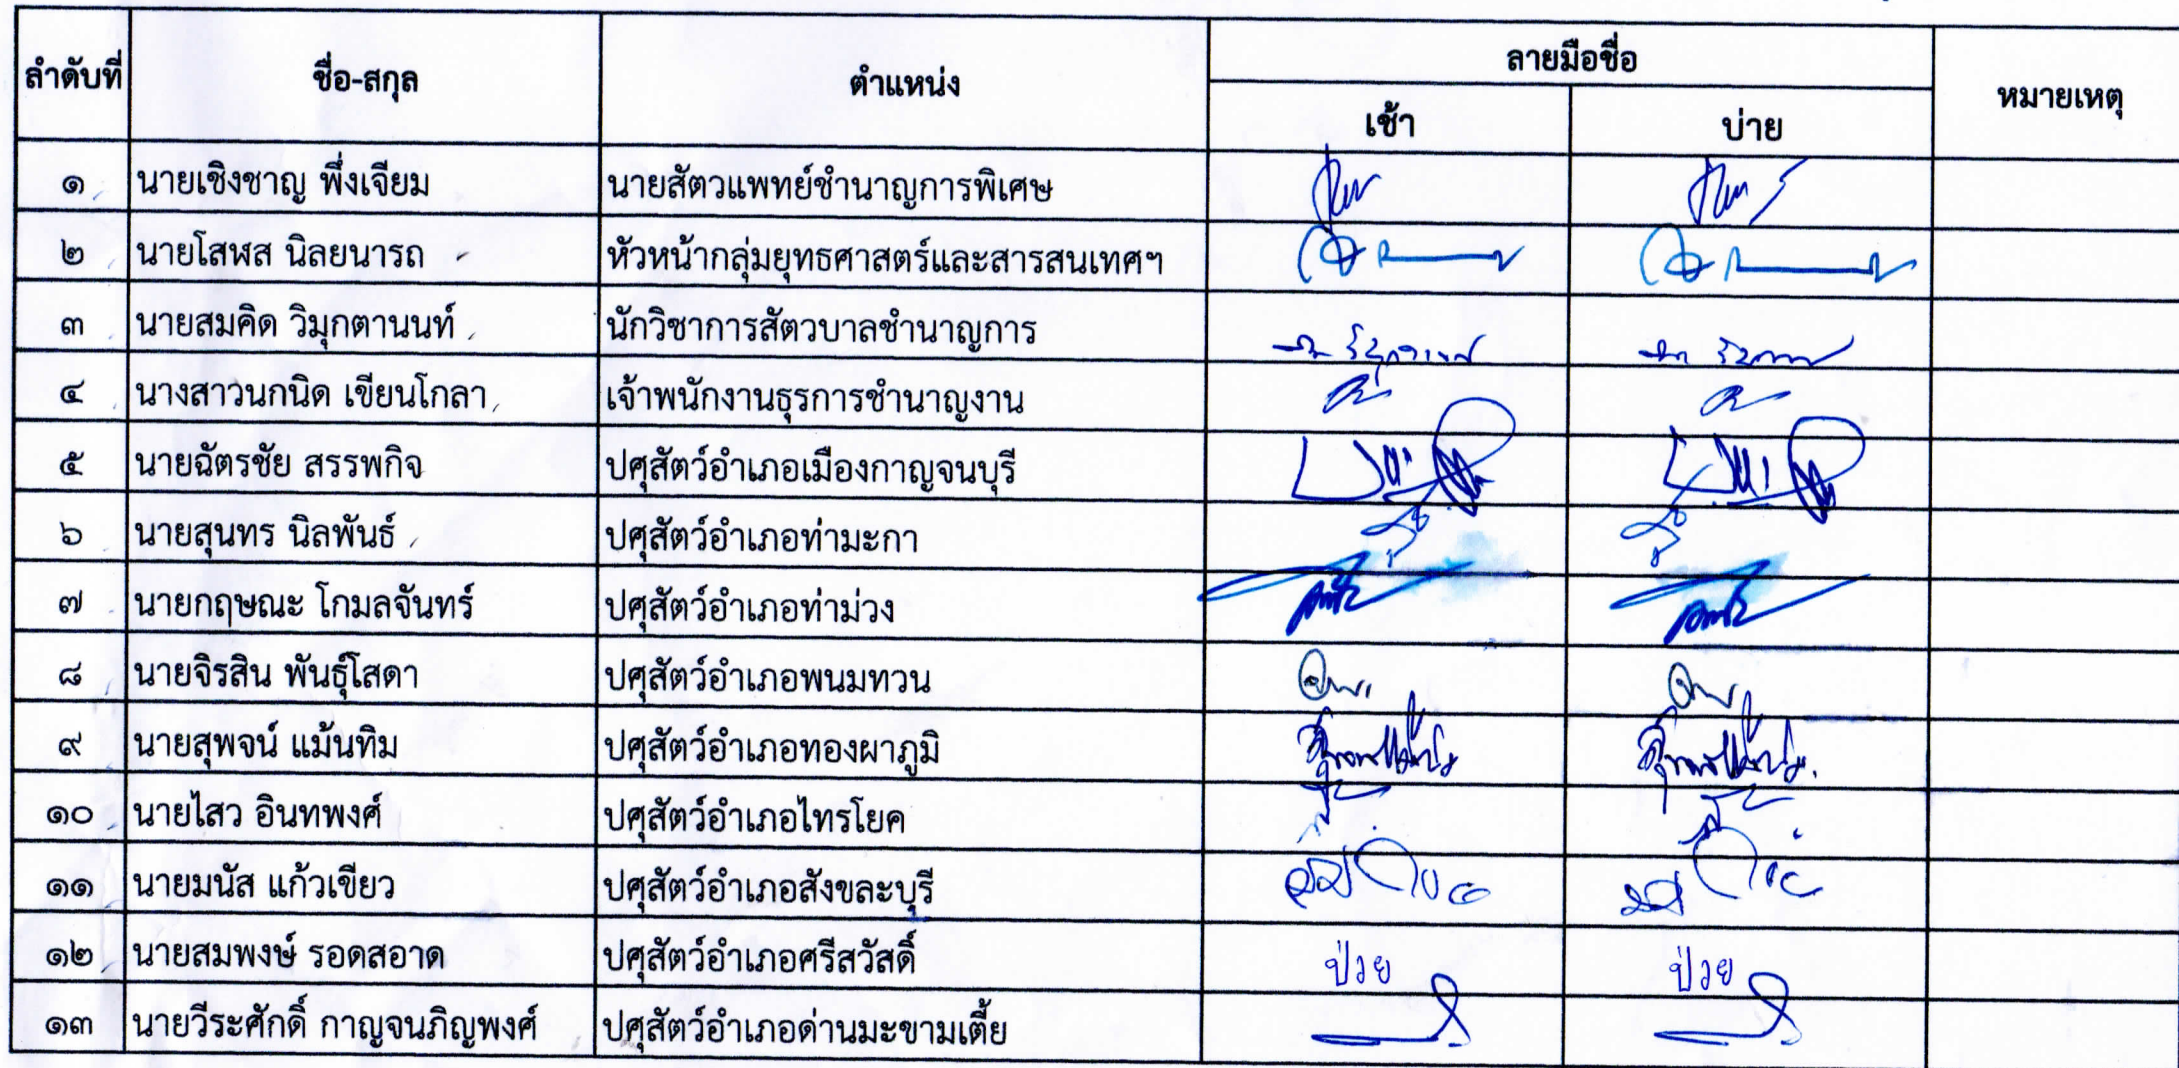 ลำดับที่ ชื่อ-สกุล ตำแหน่ง ลายมือชื่อ หมายเหตุ
เช้า บ่าย
๑ นายเชิงชาญ พึ่งเจียม นายสัตวแพทย์ชำนาญการพิเศษ
๒ นายโสฬส นิลยนารถ หัวหน้ากลุ่มยุทธศาสตร์และสารสนเทศฯ
๓ นายสมคิด วิมุกตานนท์ นักวิชาการสัตวบาลชำนาญการ
๔ นางสาวนกนิด เขียนโกลา เจ้าพนักงานธุรการชำนาญงาน
๕ นายฉัตรชัย สรรพกิจ ปศุสัตว์อำเภอเมืองกาญจนบุรี
๖ นายสุนทร นิลพันธ์ ปศุสัตว์อำเภอท่ามะกา
๗ นายกฤษณะ โกมลจันทร์ ปศุสัตว์อำเภอท่าม่วง
๘ นายจิรสิน พันธุ์โสดา ปศุสัตว์อำเภอพนมทวน
๙ นายสุพจน์ แม้นทิม ปศุสัตว์อำเภอทองผาภูมิ
๑๐ นายไสว อินทพงศ์ ปศุสัตว์อำเภอไทรโยค
๑๑ นายมนัส แก้วเขียว ปศุสัตว์อำเภอสังขละบุรี
๑๒ นายสมพงษ์ รอดสอาด ปศุสัตว์อำเภอศรีสวัสดิ์ ป่วย ป่วย
๑๓ นายวีระศักดิ์ กาญจนภิญพงศ์ ปศุสัตว์อำเภอด่านมะขามเตี้ย